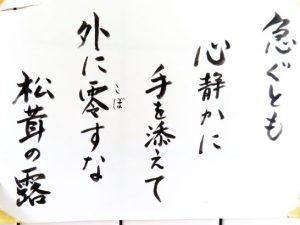 急ぐとも
心静かに
手を添えて
外に零すな
こぼ
松茸の露